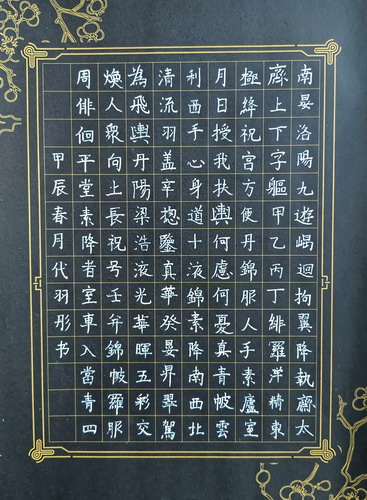 南晏洛陽九遊嵎迴拘翼降執齋太
齋上下字軀甲乙丙丁緋羅洋椅東
極絳祝宮方便丹錦服人手素廬室
月日授我扶輿何慮何憂真青帔雲
利西手心身道十液錦素降南西北
清流羽蓋辛揔鑒真華癸晏昇翠駕
為飛輿丹陽染浩液光華暉五彩交
煥人眾向上長祝号壬弁錦帔羅服
周俳佪平堂素降者室車入當青四
甲辰春月代羽彤书